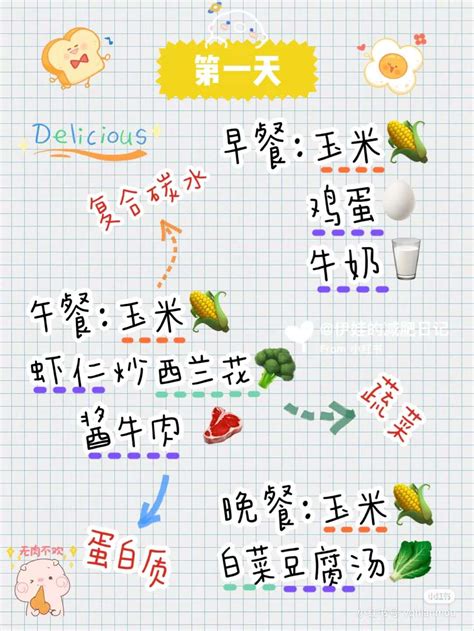 第一天
Delicious
早餐:玉米
鸡蛋
牛奶
复合碳水
午餐:玉米
虾仁炒西兰花
酱牛肉
蔬菜
蛋白质
晚餐:玉米
白菜豆腐汤
无肉不欢
小红书